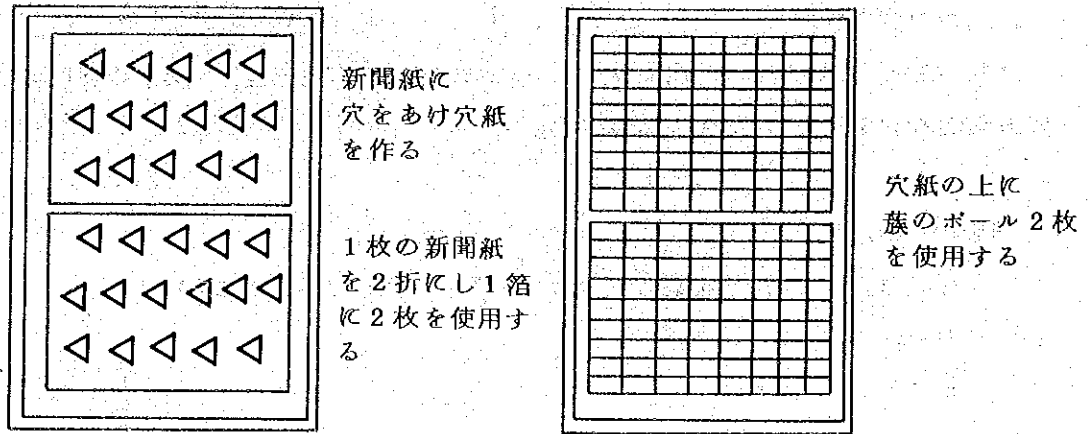 新聞紙に
穴をあけ穴紙
を作る
1枚の新聞紙
を2折にし1箔
に2枚を使用す
る
穴紙の上に
蔟のボール2枚
を使用する